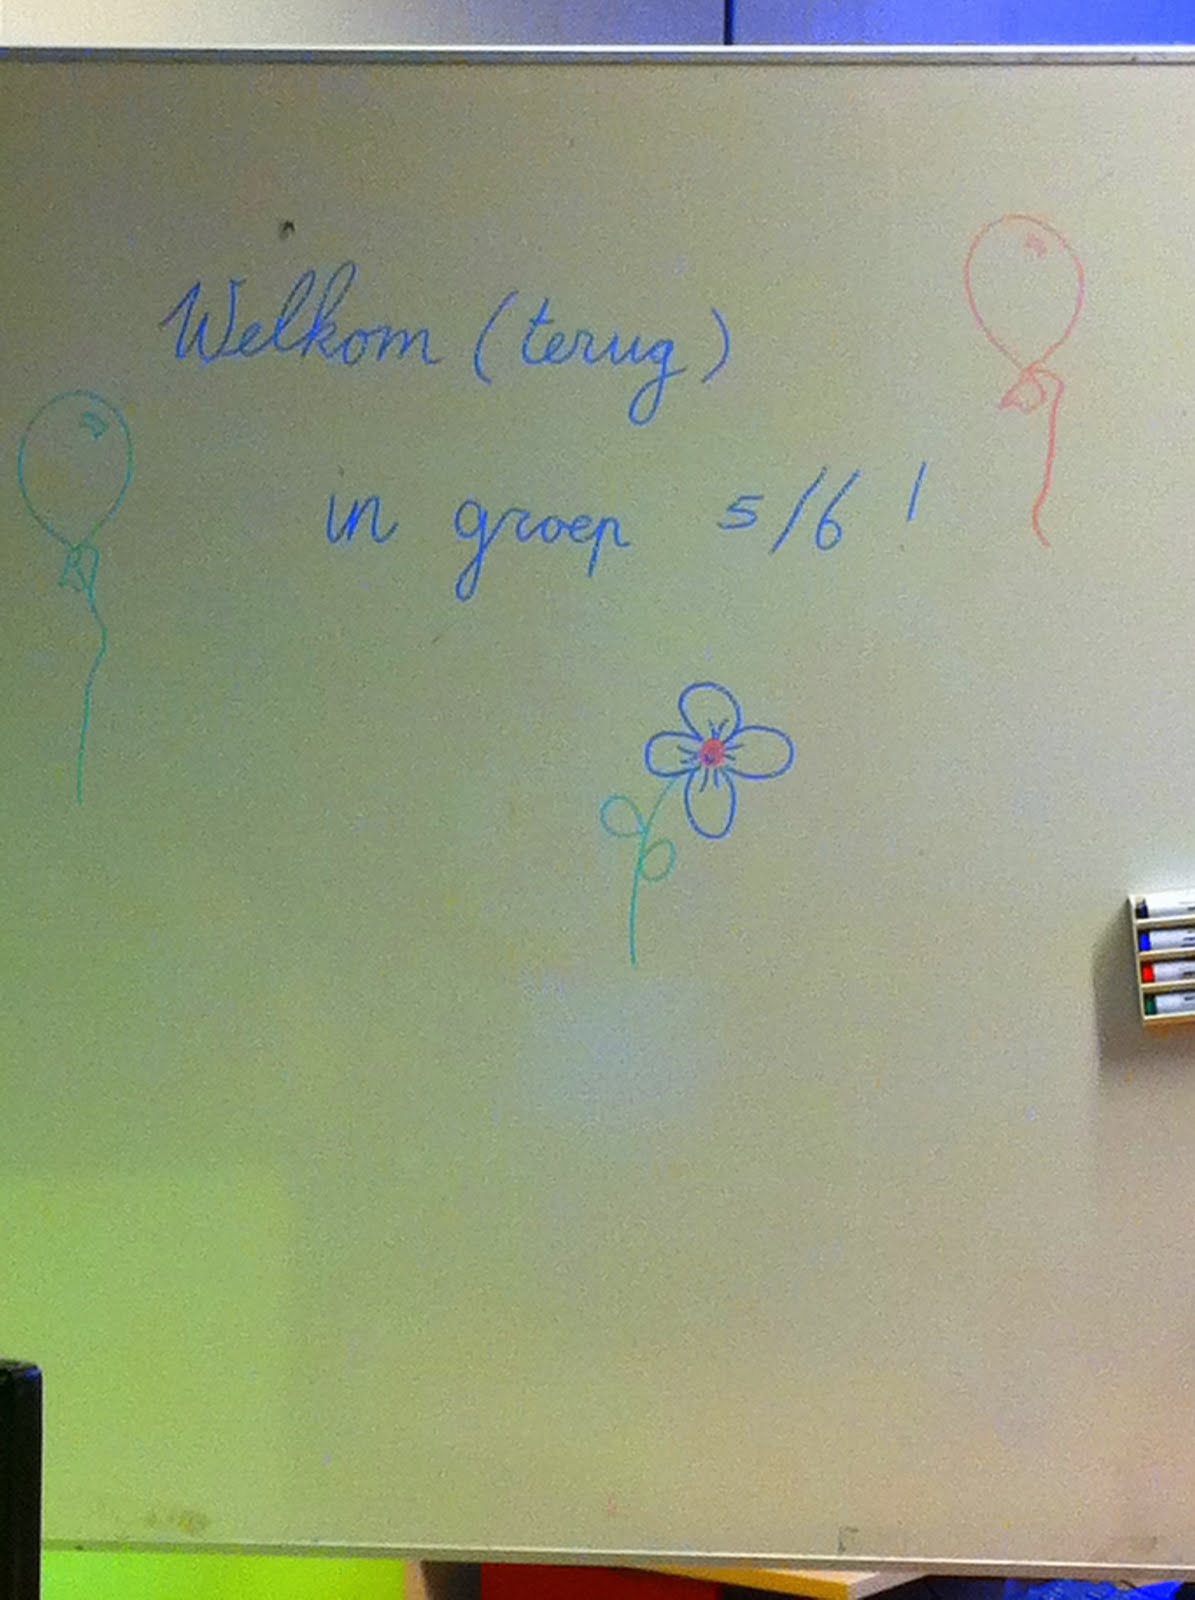 Welkom (terug)
in groep 5/6 !